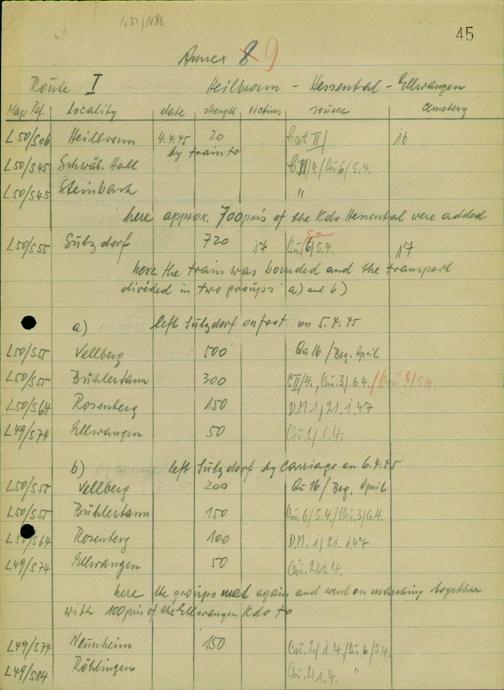 45
Annex 8 9
Route I Heilbronn - Hessental - Ellwangen
Map Ref. locality date strength victims source Cemetery
L50/506 Heilbronn 4.4.45 20 Cat II/ 16
by train to
L50/545 Schwäb. Hall C II/4/Qu 6/5.4.
L50/545 Steinbach "
here approx. 700 pris of the Kdo Hessental were added
L50/555 Sulzdorf 720 17 Qu. 6/5.4. 17
here the train was bombed and the transport
divided in two groups a) and b)
a) left Sulzdorf on foot on 5.4.45
L50/555 Vellberg 500 Qu 16/Beg. April
L50/555 Bühlertann 300 C II/4, Qu. 3/6.4. /Qu 5/5.4.
L50/564 Rosenberg 150 D.M. 1/21.1.47
L49/574 Ellwangen 50 Qu. 2/1.4.
b) left Sulzdorf by carriage on 6.4.45
L50/555 Vellberg 200 Qu 16/Beg. April
L50/555 Bühlertann 150 Qu 6/5.4./Qu. 3/6.4.
L50/564 Rosenberg 100 D.M. 1/21.1.47
L49/574 Ellwangen 50 Qu. 2/1.4.
here the groups met again and went on marching together
with 100 pris of the Ellwangen Kdo to
L49/574 Neunheim 150 Qu. 2/1.4./Qu 6/5.4.
L49/584 Röhlingen Qu. 2/1.4. "